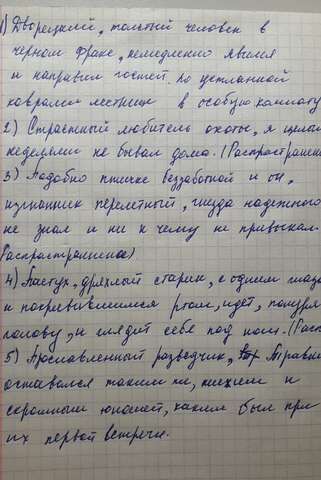 1) Дворецкий, толстый человек в
черном фраке, немедленно явился
и направил гостей по устланной
коврами лестнице в особую комнату
2) Страстный любитель охоты, я целыми
неделями не бывал дома. (Распростране
3) Подобно птичке беззаботной и он,
изгнанник перелетный, гнезда надежного
не знал и ни к чему не привыкал.
Распространенное)
4) Пастух, дряхлый старик, с одним глазом
и покривившимся ртом, идет, понуря
голову, и глядит себе под ноги. (Расп
5) Прославленный разведчик, Травкин
оставался таким же, тихим и
скромным юношей, каким был при
их первой встрече.